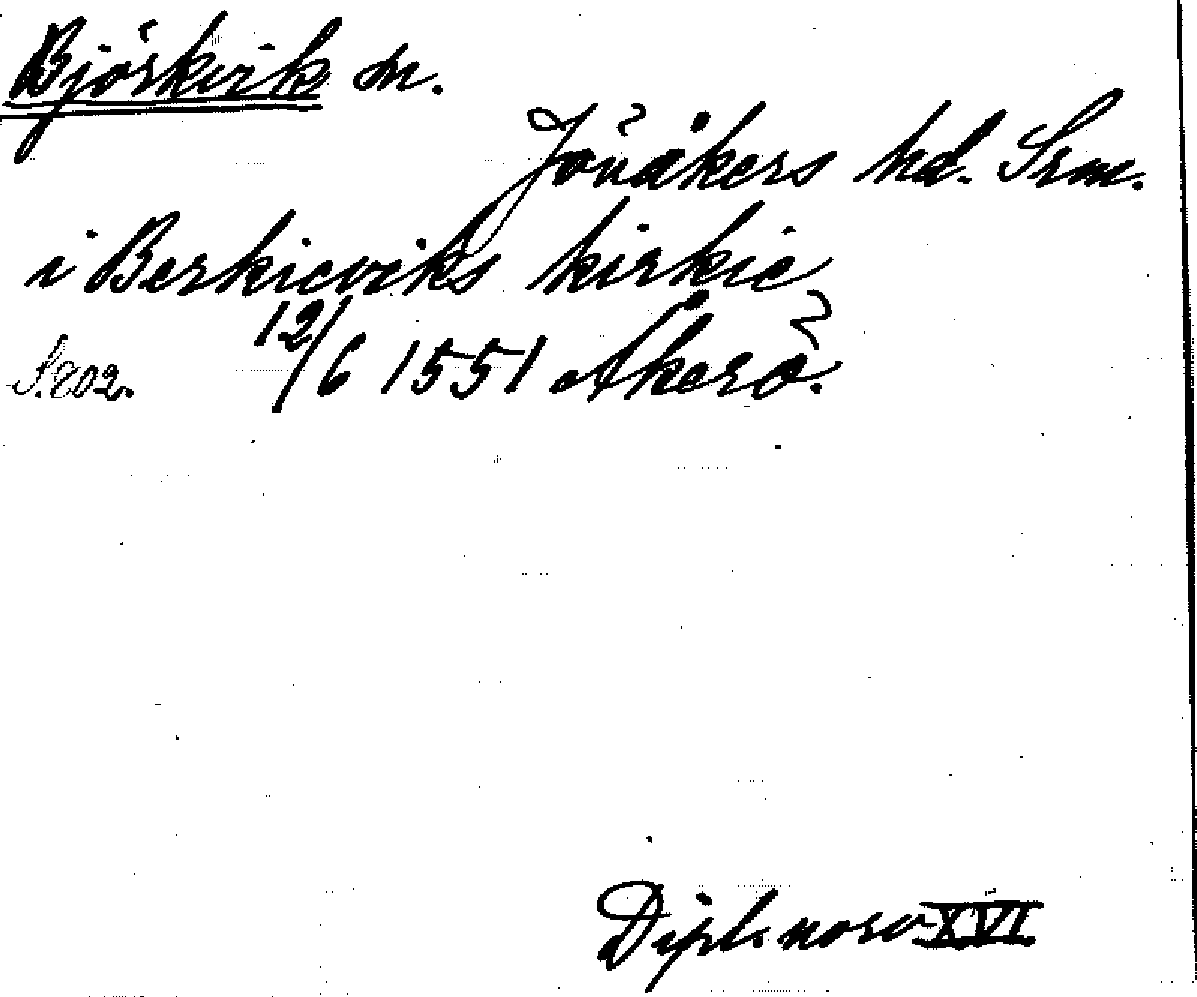 Björkvik sn.
Jönåkers hd. Srm.
i Berkieviks kirkie
S. 802. 12/6 1551 Åkerö.
Dipl. norv XVI.